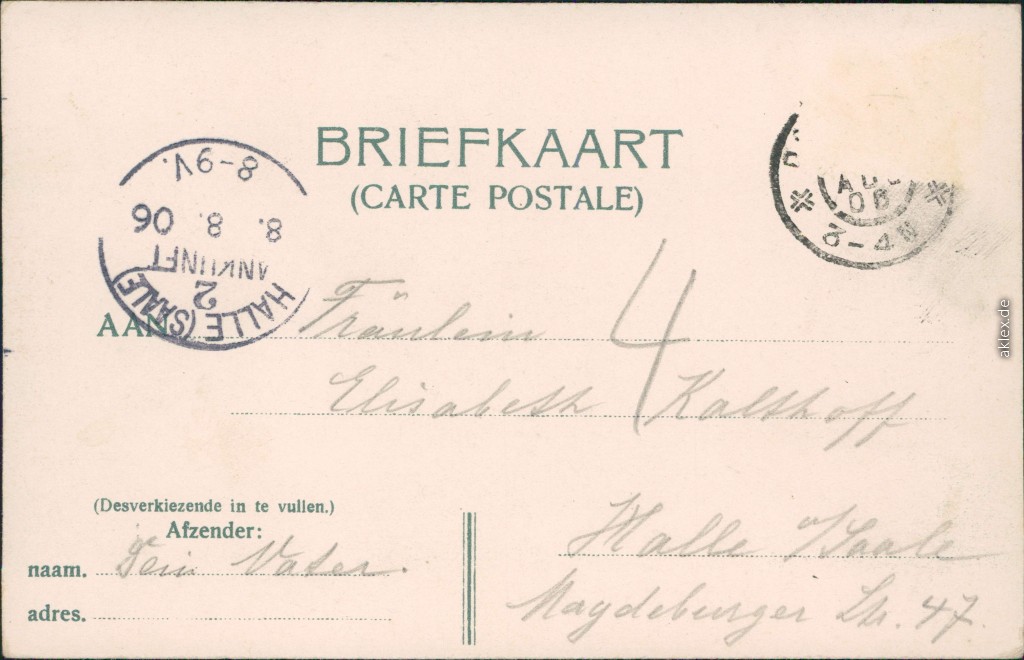 BRIEFKAART
(CARTE POSTALE)
8-9V.
8. 8. 06
ANKUNFT
2
HALLE (SAALE
AUG
06
2-4N
4
AAN Fräulein
Elisabeth Kalthoff
Halle a/Saale
Magdeburger Str. 47.
(Desverkiezende in te vullen.)
Afzender:
naam. Dein Vater.
adres.
aklex.de